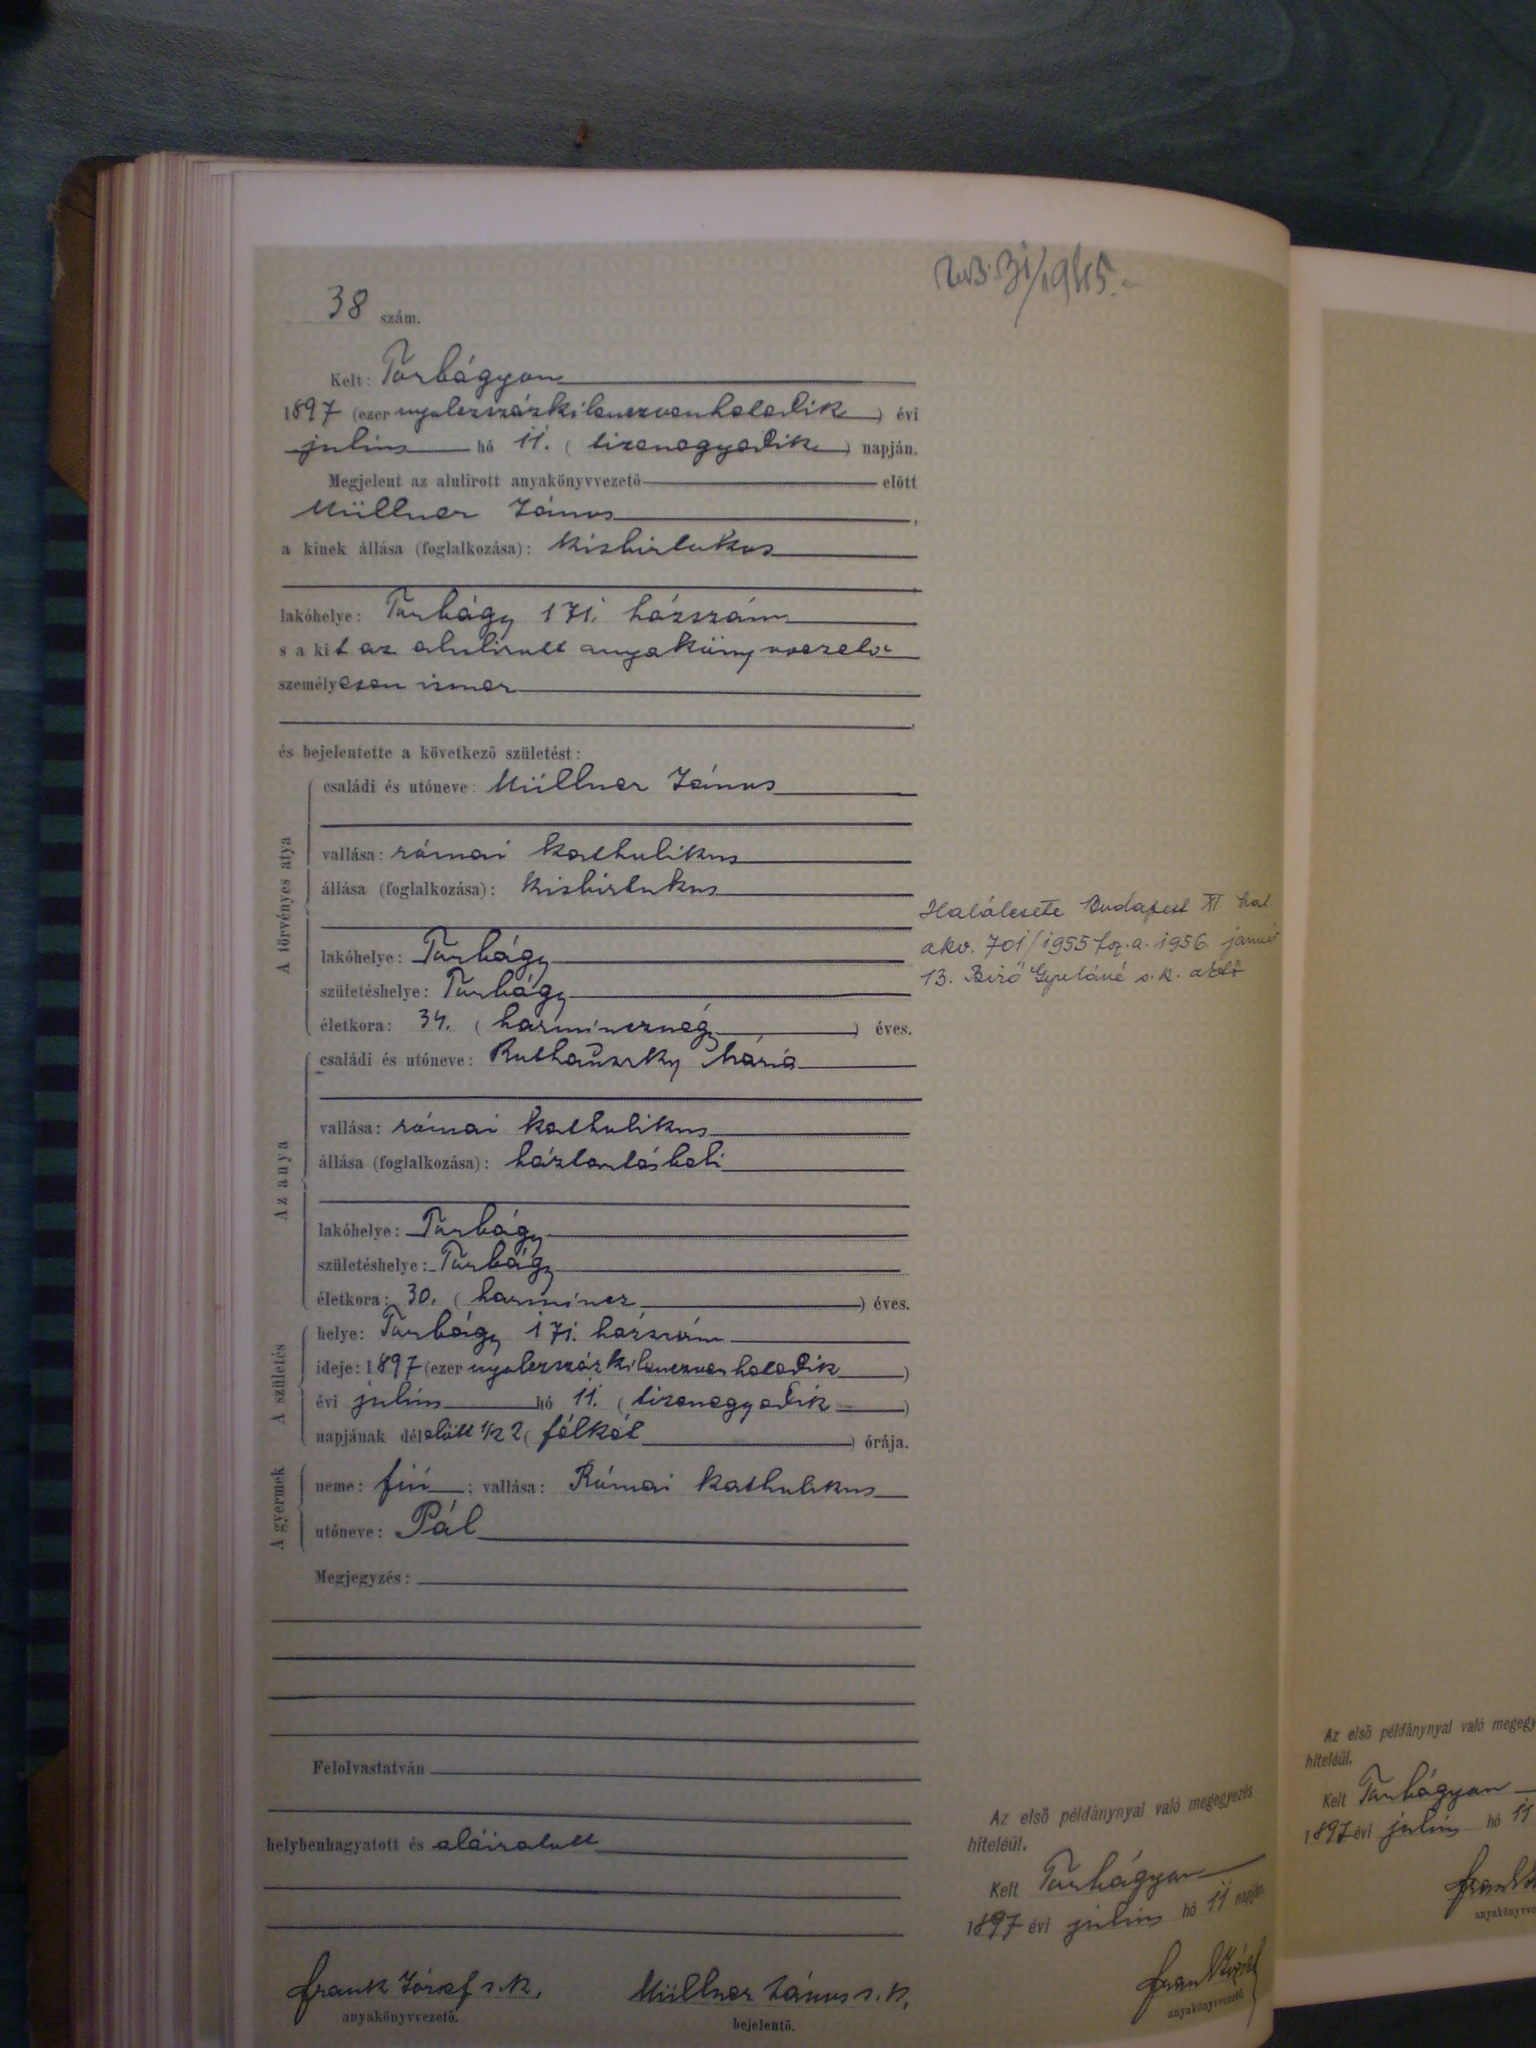 38 szám.
Kelt: Torbágyon
1897 (ezer nyolczszázkilenczvenhetedik) évi
julius hó 11. (tizenegyedik) napján.
Megjelent az alulirott anyakönyvvezető előtt
Müllner János,
a kinek állása (foglalkozása): kisbirtokos
lakóhelye: Torbágy 171. házszám
s a kit az alulirott anyakönyvvezető
személyesen ismer
és bejelentette a következő születést:
A törvényes atya
családi és utóneve: Müllner János
vallása: római katholikus
állása (foglalkozása): kisbirtokos
lakóhelye: Torbágy
születéshelye: Torbágy
életkora: 34. (harmincznégy) éves.
Az anya
családi és utóneve: Mária
vallása: római katholikus
állása (foglalkozása): háztartásbeli
lakóhelye: Torbágy
születéshelye: Torbágy
életkora: 30. (harmincz) éves.
A születés
helye: Torbágy 171. házszám
ideje: 1897 (ezer nyolczszázkilenczvenhetedik)
évi julius hó 11. (tizenegyedik)
napjának délelőtt 1/2 2 (félkét) órája.
A gyermek
neme: fiú; vallása: Római katholikus
utóneve: Pál
Megjegyzés:
Felolvastatván
helybenhagyatott és aláiratott
Frank József s.k.
anyakönyvvezető.
Müllner János s.k.
bejelentő.
Halálesete Budapest XI. hal.
akv. 701/1955 f. a. 1956. január
13. Biró Gyuláné s.k.
Az első példánynyal való megegyezés
hiteléül.
Kelt Torbágyon
1897 évi julius hó 11 napján
Frank József
anyakönyvvezető.
Az első példánynyal való
hiteléül.
Kelt Torbágyon
1897 évi julius hó 11